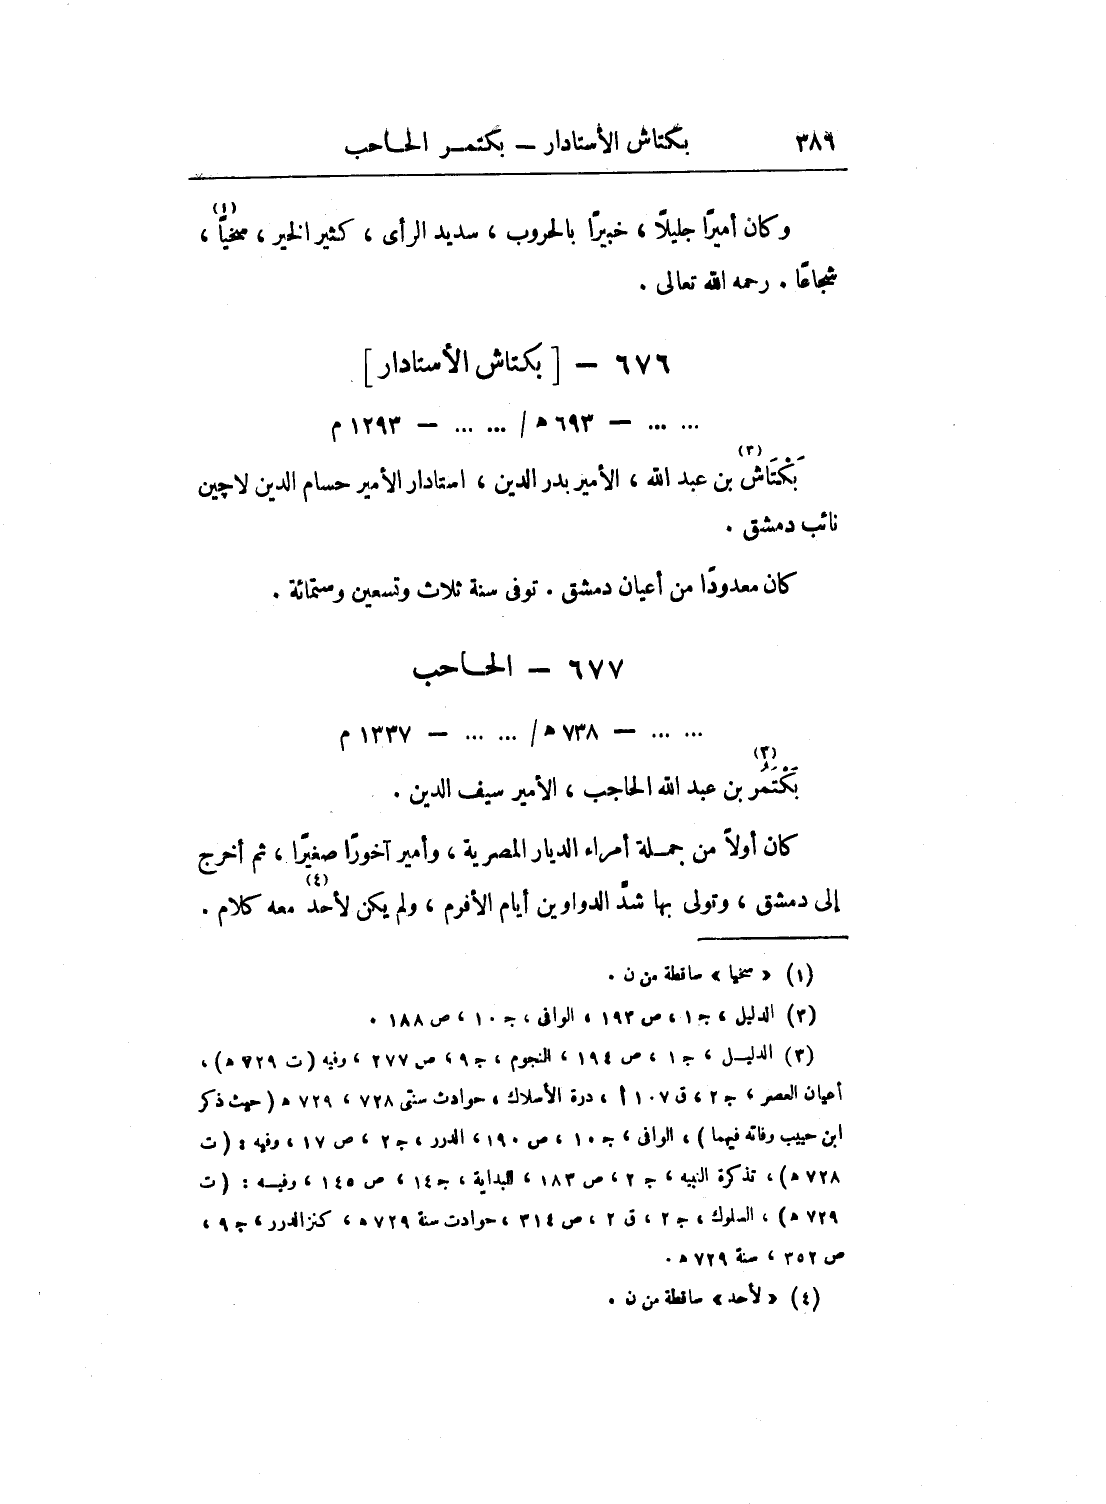 ٣٨٩ بكتاش الأستادار — بكتمر الحاجب
وكان أميرًا جليلًا ، خبيرًا بالحروب ، سديد الرأى ، كثير الخير ، سخيًّا(١) ،
شجاعًا . رحمه الله تعالى .
٦٧٦ — [ بكتاش الأستادار ]
... ... — ٦٩٣ ه / ... ... — ١٢٩٣ م
بَكْتَاش(٢) بن عبد الله ، الأمير بدر الدين ، استادار الأمير حسام الدين لاچين
نائب دمشق .
كان معدودًا من أعيان دمشق . توفى سنة ثلاث وتسعين وستمائة .
٦٧٧ — الحاجب
... ... — ٧٣٨ ه / ... ... — ١٣٣٧ م
بَكْتَمُر(٣) بن عبد الله الحاجب ، الأمير سيف الدين .
كان أولاً من جملة أمراء الديار المصرية ، وأمير آخورًا صغيرًا ، ثم أخرج
إلى دمشق ، وتولى بها شدَّ الدواوين أيام الأفرم ، ولم يكن لأحد(٤) معه كلام .
(١) « سخيا » ساقطة من ن .
(٢) الدليل ، ج ١ ، ص ١٩٣ ، الوافى ، ج ١٠ ، ص ١٨٨ .
(٣) الدليل ، ج ١ ، ص ١٩٤ ، النجوم ، ج ٩ ، ص ٢٧٧ ، وفيه ( ت ٧٢٩ ه ) ،
أعيان العصر ، ج ٢ ، ق ١٠٧ أ ، درة الأسلاك ، حوادث سنتى ٧٢٨ ، ٧٢٩ ه ( حيث ذكر
ابن حبيب وفاته فيهما ) ، الوافى ، ج ١٠ ، ص ١٩٠ ، الدرر ، ج ٢ ، ص ١٧ ، وفيه : ( ت
٧٢٨ ه ) ، تذكرة النبيه ، ج ٢ ، ص ١٨٣ ، البداية ، ج ١٤ ، ص ١٤٥ ، وفيه : ( ت
٧٢٩ ه ) ، السلوك ، ج ٢ ، ق ٢ ، ص ٣١٤ ، حوادث سنة ٧٢٩ ه ، كنز الدرر ، ج ٩ ،
ص ٣٥٢ ، سنة ٧٢٩ ه .
(٤) « لأحد » ساقطة من ن .